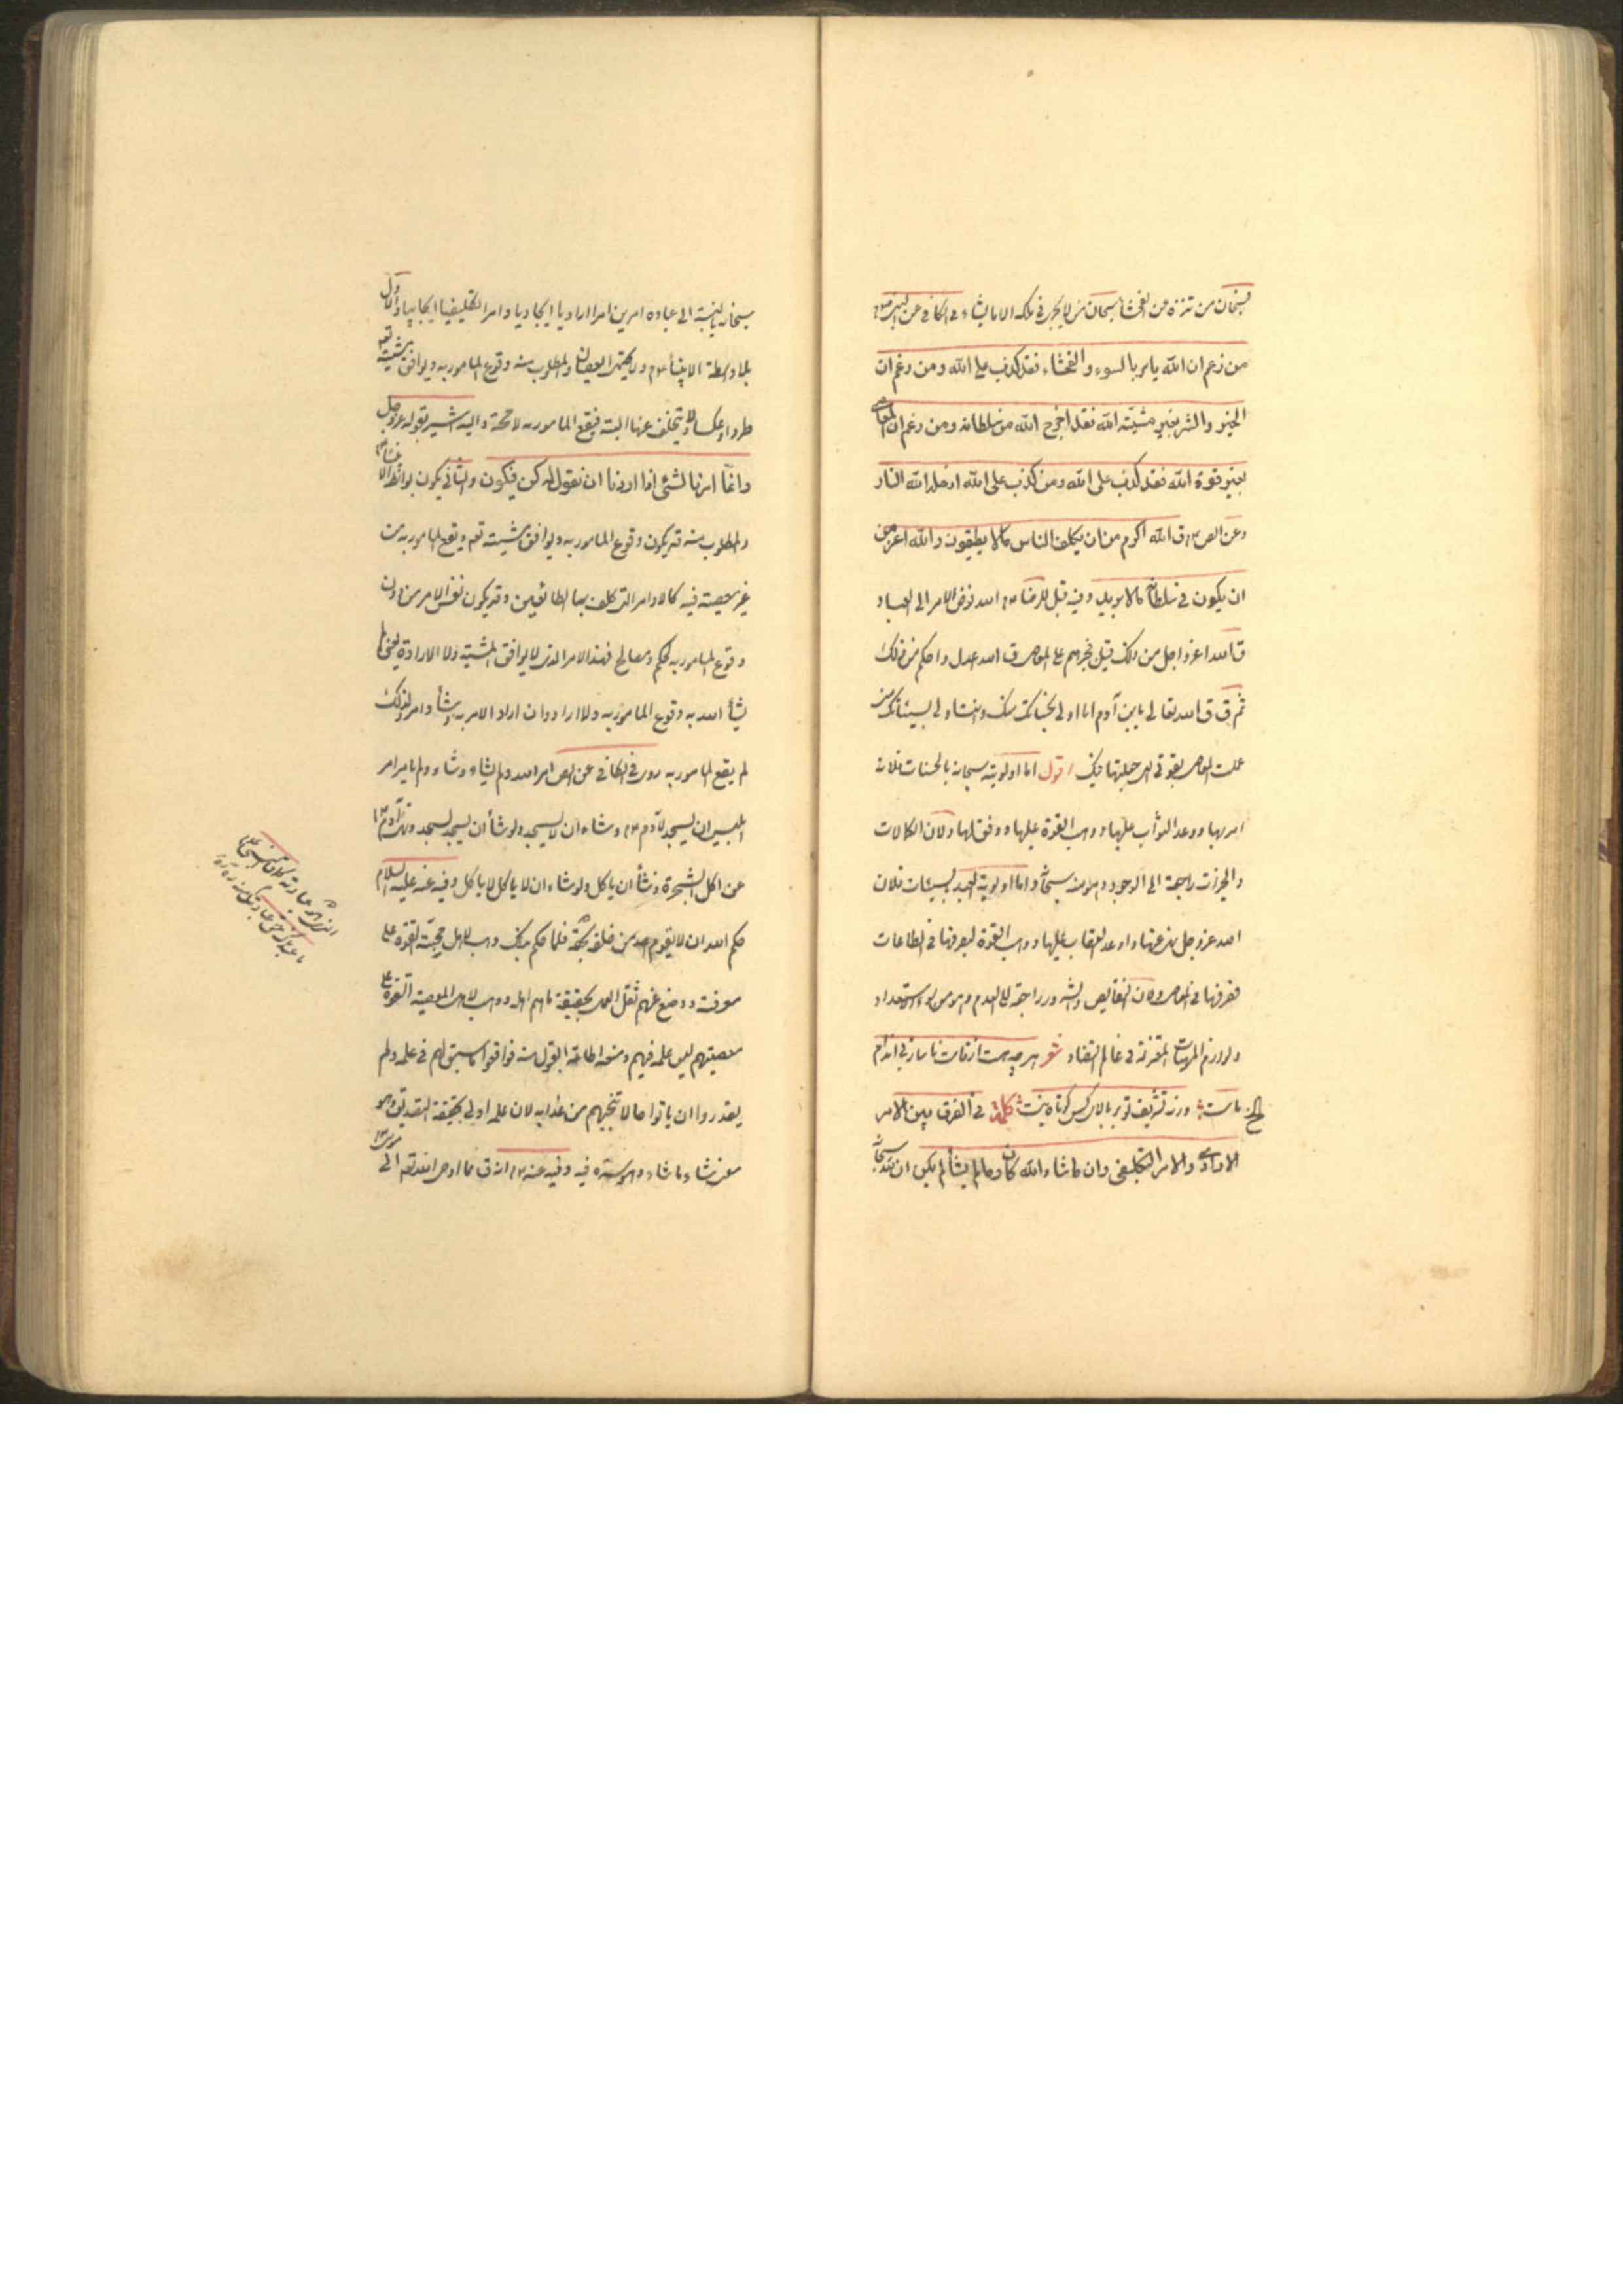 فسبحان من تنزه عن الفحشا سبحان من لا يجرى فى ملكه الا ما يشاء فى الكافى عن النبى ص
من زعم ان الله يامر بالسوء والفحشاء فقد كذب على الله ومن زعم ان
الخير والشر بغير مشيّته الله فقد اخرج الله من سلطانه ومن زعم ان المعاصى
بغير قوة الله فقد كذب على الله ومن كذب على الله ادخله الله النار
وعن الص ع ق الله اكرم من ان يكلف الناس مالا يطيقون والله اعز من
ان يكون فى سلطانه مالا يريد وفيه قيل للرضا ع الله فوض الامر الى العباد
ق الله اعز واجل من ذلك قيل فجبرهم على المعاصى ق الله اعدل واحكم من ذلك
ثم ق ق الله تعالى يا بن آدم انا اولى بحسناتك منك وانت اولى بسيئاتك منى
عملت المعاصى بقوتى التى جعلتها فيك اقول اما اولويته سبحانه بالحسنات فلانه
امر بها ووعد الثواب عليها ووهب القوة عليها ووفق لها ولان الكمالات
والخيرات راجعة الى الوجود وهو منه سبحانه واما اولوية العبد بالسيئات فلان
الله عز وجل نهى عنها واوعد العقاب عليها ووهب القوة ليصرفها فى الطاعات
فصرفها فى المعاصى ولان النقايص والشرور راجعة الى العدم وهو من لو استعداد
ولوازم المهيات المتنزلة فى عالم التضاد شعر هر چه هست از قامت ناساز بى اندام
ماست ورنه تشريف تو بر بالاى كس كوتاه نيست كلمة فى الفرق بين الامر
الارادى والامر التكليفى وان ما شاء الله كان وما لم يشأ لم يكن ان لله سبحانه
سبحانه بالنسبة الى عباده امرين امرا اراديا ايجاديا وامرا تكليفيا ايجابيا والاول
بلا واسطة الانبياء ع ولا يحتمل العصيان والمطلوب منه وقوع المامور به ويوافق مشيته تعه
طردا وعكسا ولا يتخلف عنها البتة فيقع المامور به لا محة واليه اشير بقوله عز وجل
وانمّا امرنا لشئ اذا اردنا ان نقول له كن فيكون والثانى يكون بواسطة الانبياء ع
والمطلوب منه قد يكون وقوع المامور به ويوافق مشيته تعه ويقع المامور به من
غير معصية فيه كالاوامر التى كلف بها الطائعين وقد يكون نفس الامر من دون
وقوع المامور به لحكم ومصالح فهذا الامر الذى لا يوافق المشية ولا الارادة يعنى لم
يشأ الله به وقوع المامور به ولا اراد وان اراد الامر به وشأ وامر ولذلك
لم يقع المامور به روى فى الكافى عن الص امر الله ولم يشاء وشاء ولم يامر امر
ابليس ان يسجد لآدم ع وشاء ان لا يسجد ولو شأ ان يسجد لسجد ونهى آدم ع
عن اكل الشجرة وشأ ان ياكل ولو شاء ان لا ياكل لا ياكل وفيه عنه عليه السلام
حكم الله ان لا يقوم احد من خلقه بحقه فلما حكم بذلك وهب لاهل محبته القوة على
معرفته ووضع عنهم ثقل العمل بحقيقة ما هم اهله ووهب لاهل المعصية القوة على
معصيتهم لسبق علمه فيهم ومنعه اطاقة القبول منه فوافقوا ما سبق لهم فى علمه ولم
يقدروا ان ياتوا حالا تنجيهم من عذابه لان علمه اولى بحقيقة التصديق وهو
معنى شاء ما شاء وهو سره فيه وفيه عنه ع انه ق مما اوحى الله تعه الى موسى ع